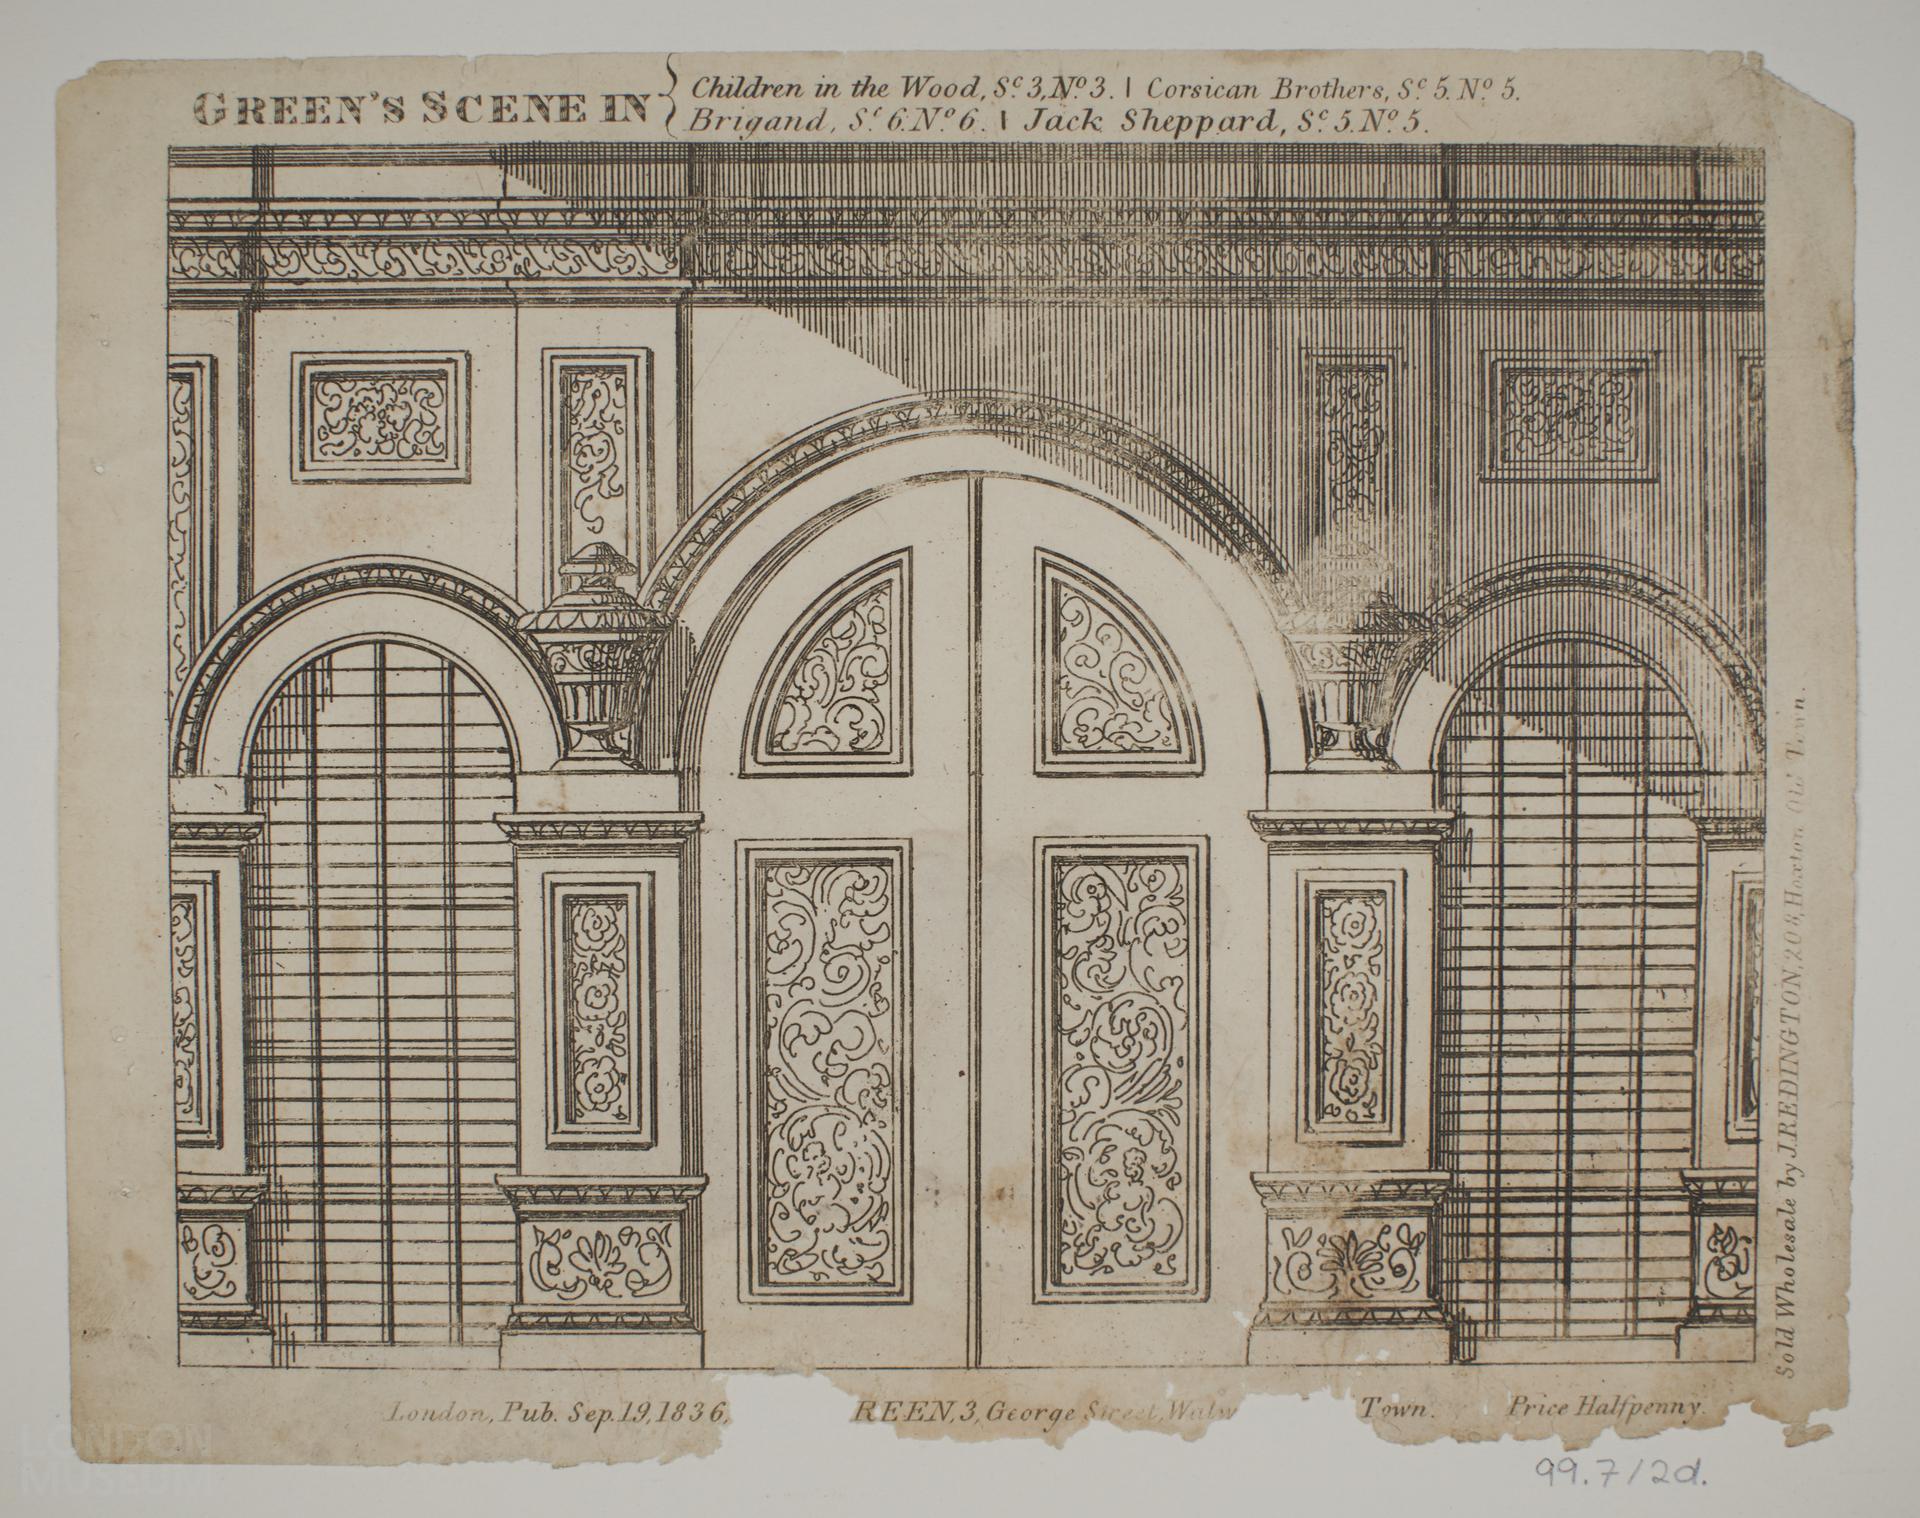 GREEN'S SCENE IN { Children in the Wood, Sc. 3, No. 3. | Corsican Brothers, Sc. 5. No. 5.
Brigand, Sc. 6. No. 6. | Jack Sheppard, Sc. 5. No. 5.
Sold Wholesale by J. REDINGTON, 208, Hoxton Old Town.
London, Pub. Sep. 19, 1836, REEN, 3, George Street, Walw Town. Price Halfpenny.
99.7/2d.
LONDON
MUSEUM